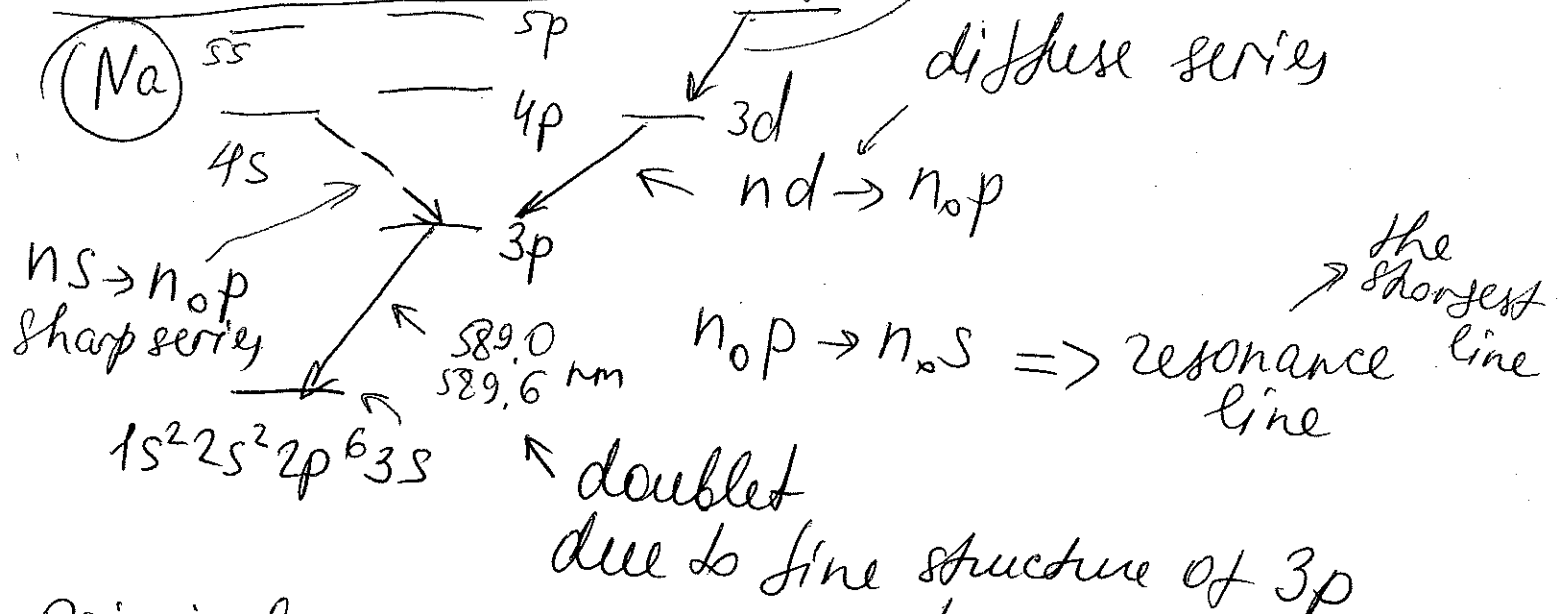 Na
5s
5p
4s
4p
3d
diffuse series
nd → n₀p
3p
ns → n₀p
sharp series
589.0
589.6 nm
n₀p → n₀s => resonance
line
the
strongest
line
1s² 2s² 2p⁶ 3s
doublet
due to fine structure of 3p